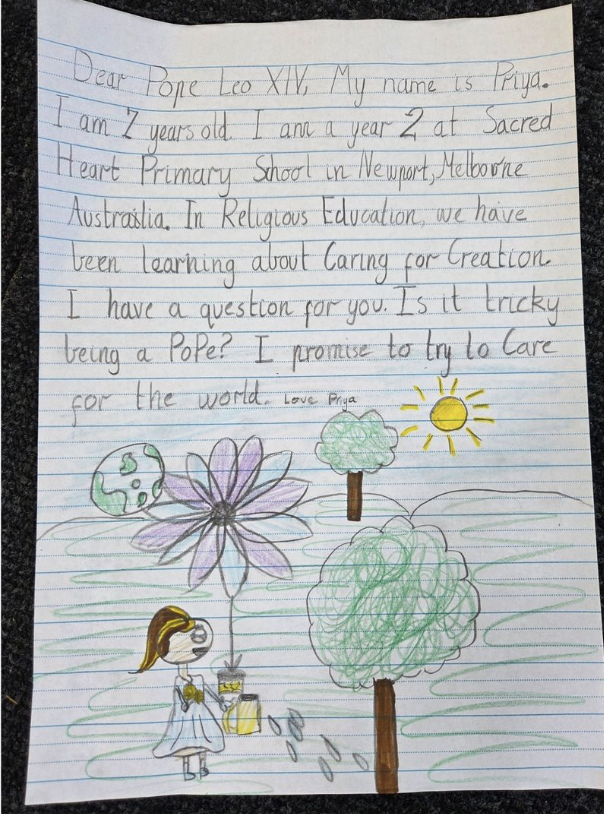 Dear Pope Leo XIV, My name is Priya.
I am 7 years old. I am a year 2 at Sacred
Heart Primary School in Newport, Melborne
Austrailia. In Religious Education, we have
been learning about Caring for Creation.
I have a question for you. Is it tricky
being a PoPe? I promise to try to Care
for the world. Love Priya